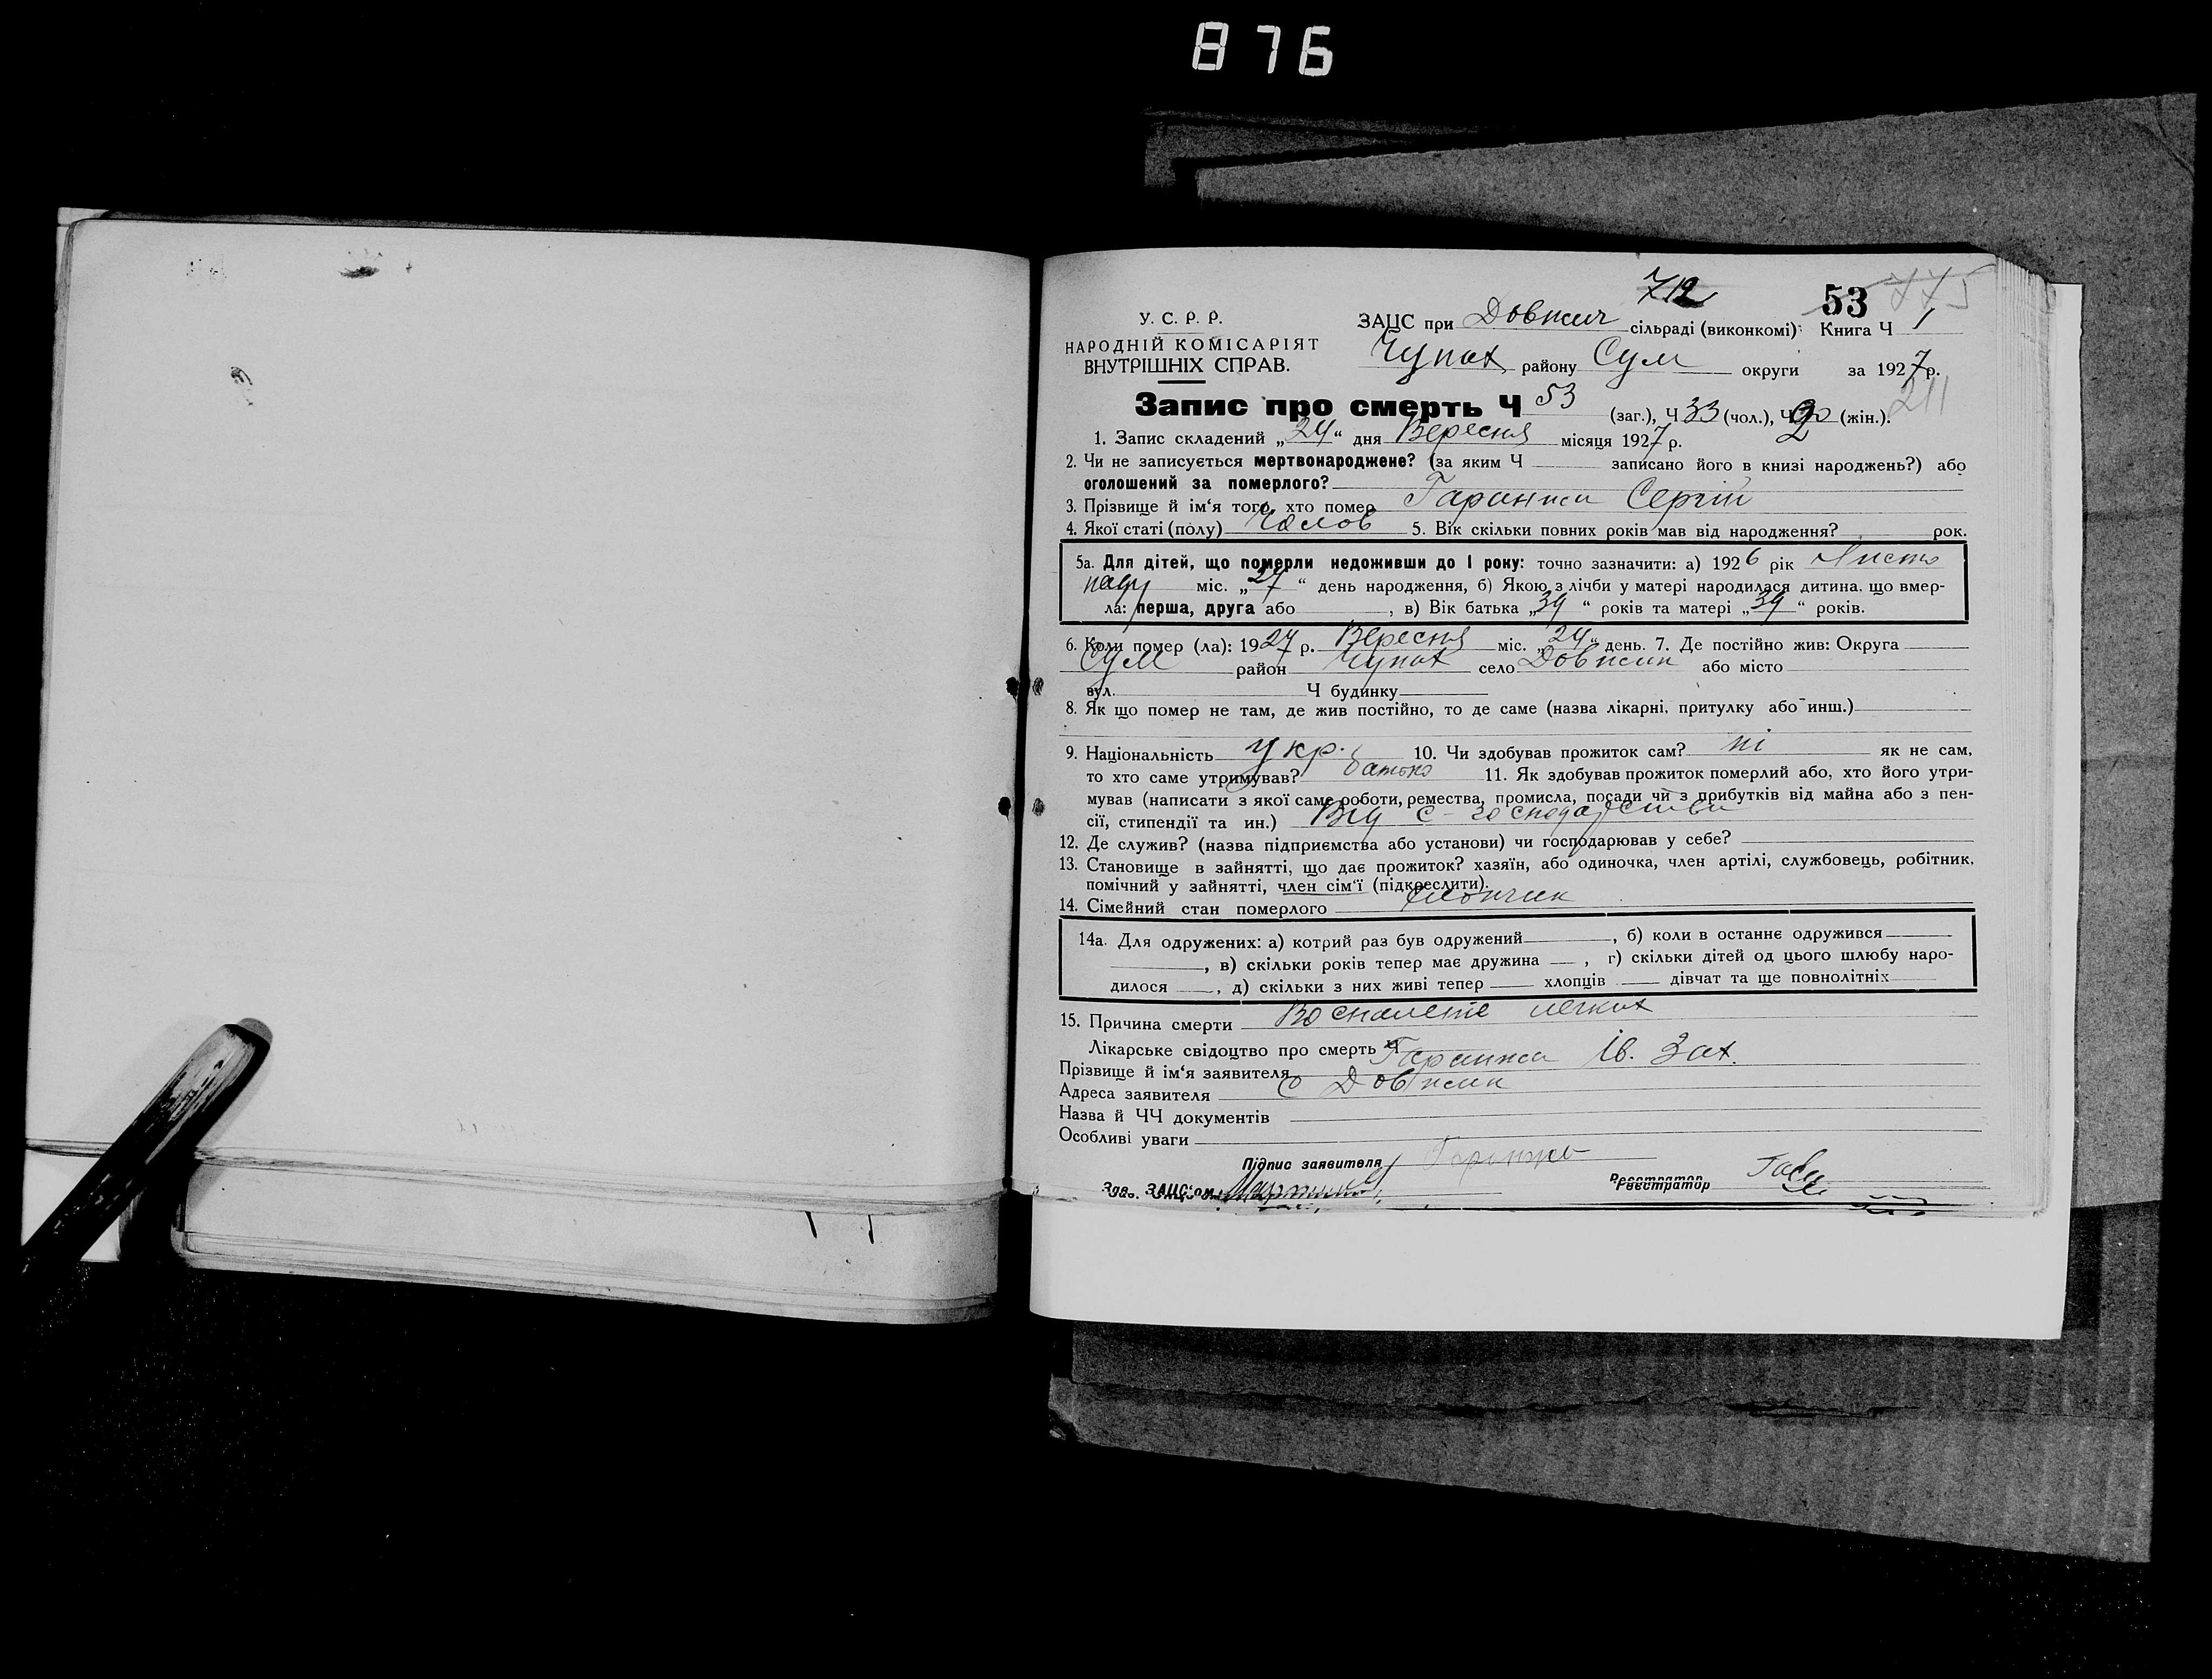 876
712
53 775
У. С. Р. Р.
НАРОДНІЙ КОМІСАРІЯТ
ВНУТРІШНІХ СПРАВ.
ЗАЦС при Довжич сільраді (виконкомі): Книга Ч 1
Чупах району Сум округи за 1927 р.
211
Запис про смерть Ч 53 (заг.), Ч 33 (чол.), Ч (жін.).
1. Запис складений „24“ дня Вересня місяця 1927 р.
2. Чи не записується мертвонароджене? (за яким Ч записано його в книзі народжень?) або
оголошений за померлого?
3. Прізвище й ім‘я того, хто помер Гаранжа Сергій
4. Якої статі (полу) Чолов 5. Вік скільки повних років мав від народження? рок.
5а. Для дітей, що померли недоживши до 1 року: точно зазначити: а) 1926 рік Листо
паду міс. „27“ день народження, б) Якою з лічби у матері народилася дитина, що вмер-
ла: перша, друга або , в) Вік батька „39“ років та матері „39“ років.
6. Коли помер (ла): 1927 р. Вересня міс. „24“ день. 7. Де постійно жив: Округа
Сум район Чупах село Довжик або місто
вул. Ч будинку
8. Як що помер не там, де жив постійно, то де саме (назва лікарні, притулку або инш.)
9. Національність Укр. 10. Чи здобував прожиток сам? ні як не сам,
то хто саме утримував? батько 11. Як здобував прожиток померлий або, хто його утри-
мував (написати з якої саме роботи, ремества, промисла, посади чи з прибутків від майна або з пен-
сії, стипендії та ин.) Від с-господарства
12. Де служив? (назва підприємства або установи) чи господарював у себе?
13. Становище в зайнятті, що дає прожиток? хазяїн, або одиночка, член артілі, службовець, робітник,
помічний у зайнятті, член сім‘ї (підкреслити).
14. Сімейний стан померлого хлопчик
14а. Для одружених: а) котрий раз був одружений , б) коли в останнє одружився
, в) скільки років тепер має дружина , г) скільки дітей од цього шлюбу наро-
дилося , д) скільки з них живі тепер хлопців дівчат та ще повнолітніх
15. Причина смерти Воспаленіе легких
Лікарське свідоцтво про смерть Ч
Прізвище й ім‘я заявителя Гаранжа Ів. Зах.
Адреса заявителя с Довжик
Назва й ЧЧ документів
Особливі уваги
Підпис заявителя Гаранжа
Зав. ЗАЦС‘ом Реєстратор